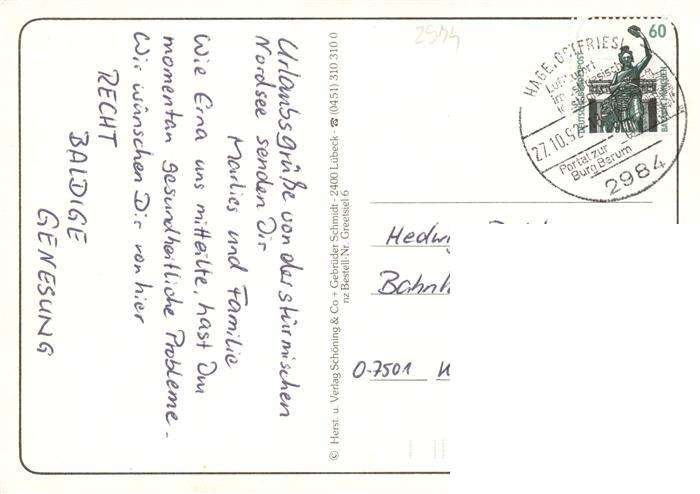 Urlaubsgrüße von der stürmischen
Nordsee senden Dir
Marlies und Familie
Wie Erna uns mitteilte, hast Du
momentan gesundheitliche Probleme-
Wir wünschen Dir von hier
RECHT
BALDIGE
GENESUNG
© Herst. u. Verlag Schöning & Co + Gebrüder Schmidt - 2400 Lübeck - ☎ (0451) 310 310 0
nz Bestell-Nr. Greetsiel 6
2984
HAGE, OSTFRIESL
Luftkurort
27.10.92
Portal zur
Burg Berum
2984
60
DEUTSCHE BUNDESPOST
BAVARIA MÜNCHEN
Hedwi
Bahnh
O-7501